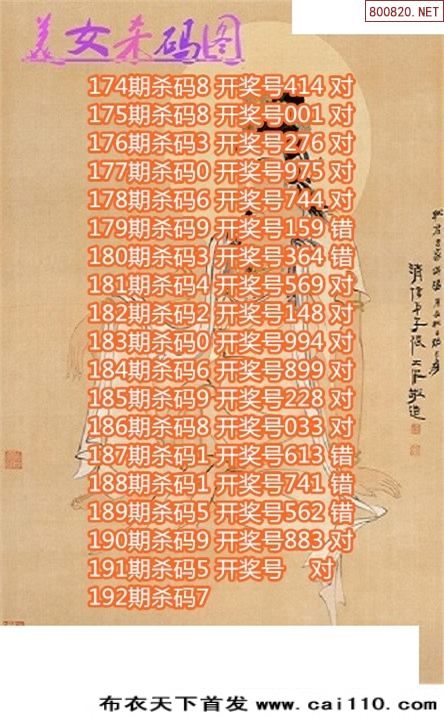 800820.NET
美女杀码图
174期杀码8 开奖号414 对
175期杀码8 开奖号001 对
176期杀码3 开奖号276 对
177期杀码0 开奖号975 对
178期杀码6 开奖号744 对
179期杀码9 开奖号159 错
180期杀码3 开奖号364 错
181期杀码4 开奖号569 对
182期杀码2 开奖号148 对
183期杀码0 开奖号994 对
184期杀码6 开奖号899 对
185期杀码9 开奖号228 对
186期杀码8 开奖号033 对
187期杀码1 开奖号613 错
188期杀码1 开奖号741 错
189期杀码5 开奖号562 错
190期杀码9 开奖号883 对
191期杀码5 开奖号 对
192期杀码7
布衣天下首发 www.cai110.com